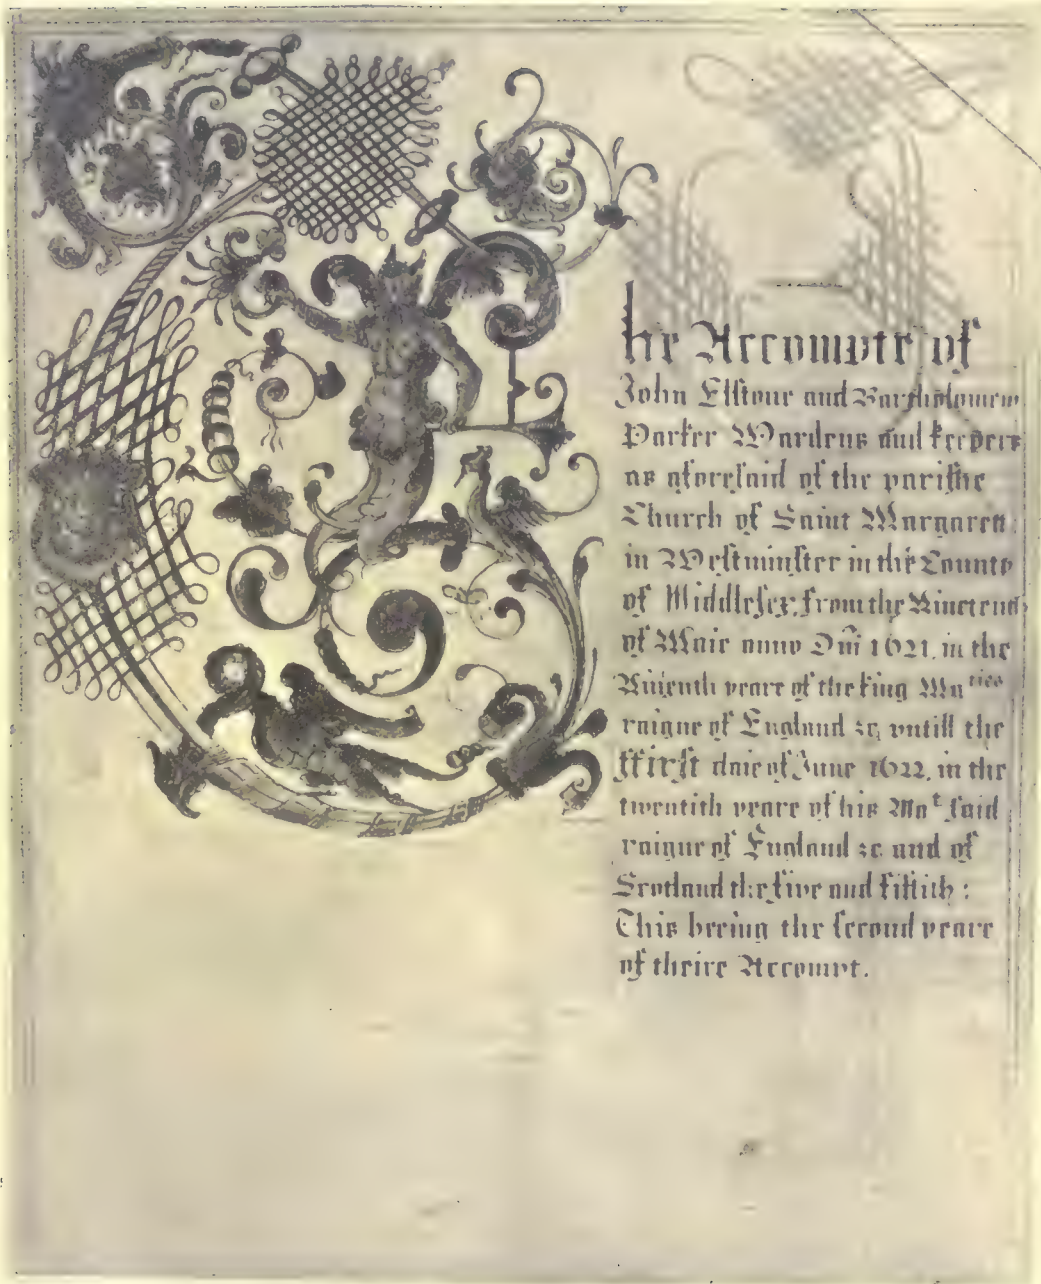 The Accompte of
John Elstone and Bartholomew
Parker Wardens and keepers
as aforesaid of the parishe
Church of Saint Margarett
in Westminster in the County
of Middlesex, from the Nineteenth
of Maie anno Dñi 1621. in the
yeare of the king Ma^ties
raigne of England &c, untill the
ffirst daie of June 1622. in the
twentith yeare of his Ma^t said
raigne of England &c. and of
Scotland the five and fiftith :
This beeing the second yeare
of theire Accompt.